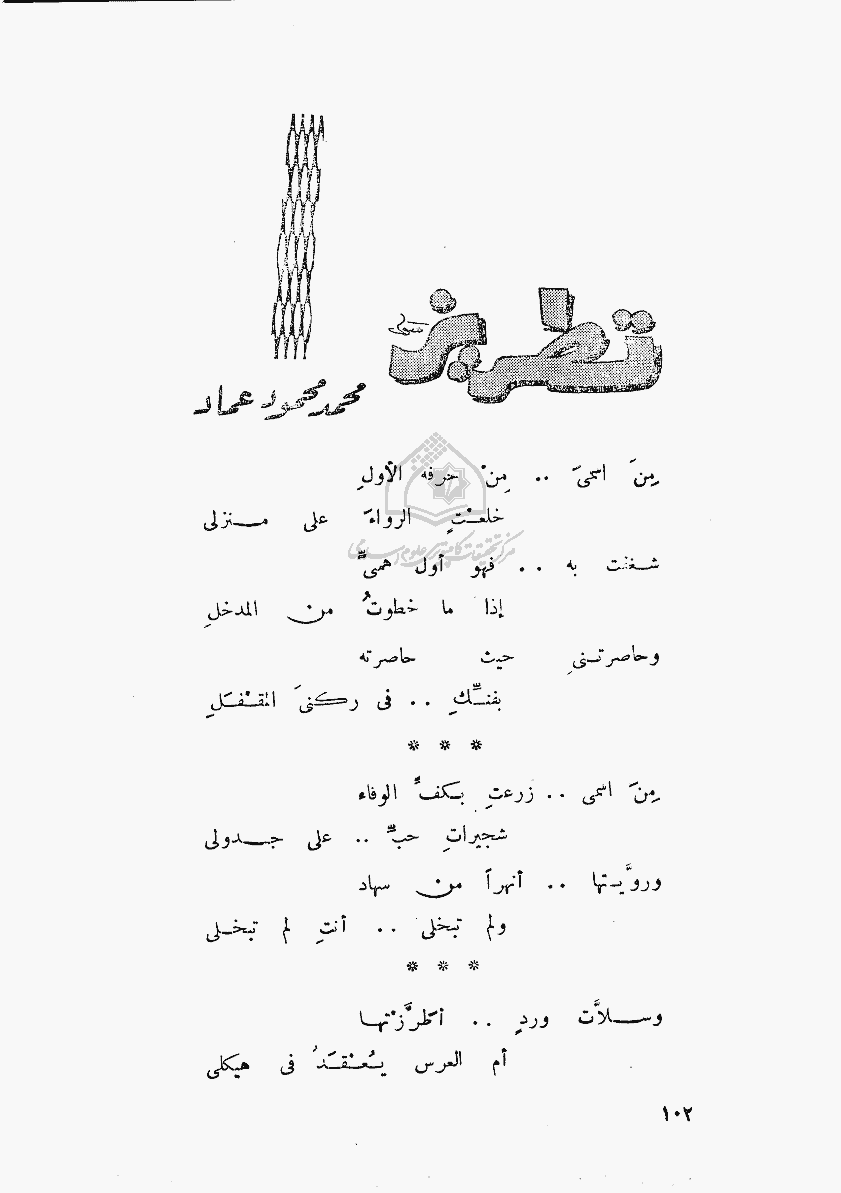 تطريز
محمد محمود عماد
مِنَ اسمىَ .. مِنْ حرفه الأولِ
خلعْتِ الرواءَ على منزلى
شغلت به .. فهو أول همىٍّ
إذا ما خطوتُ من المدخلِ
وحاصرتنىِ حيث حاصرته
بفنِّكِ .. فى ركنىَ المقْفَلِ
* * *
مِنَ اسمى .. زرعتِ بكفِّ الوفاء
شجيراتِ حبٍّ .. على جدولى
وروَّيتها .. أنهراً من سهاد
ولم تبخلى .. أنتِ لم تبخلى
* * *
وسلاَّت وردٍ .. أطرَّزْتها
أم العرس يُعْقَدُ فى هيكلى
١٠٢